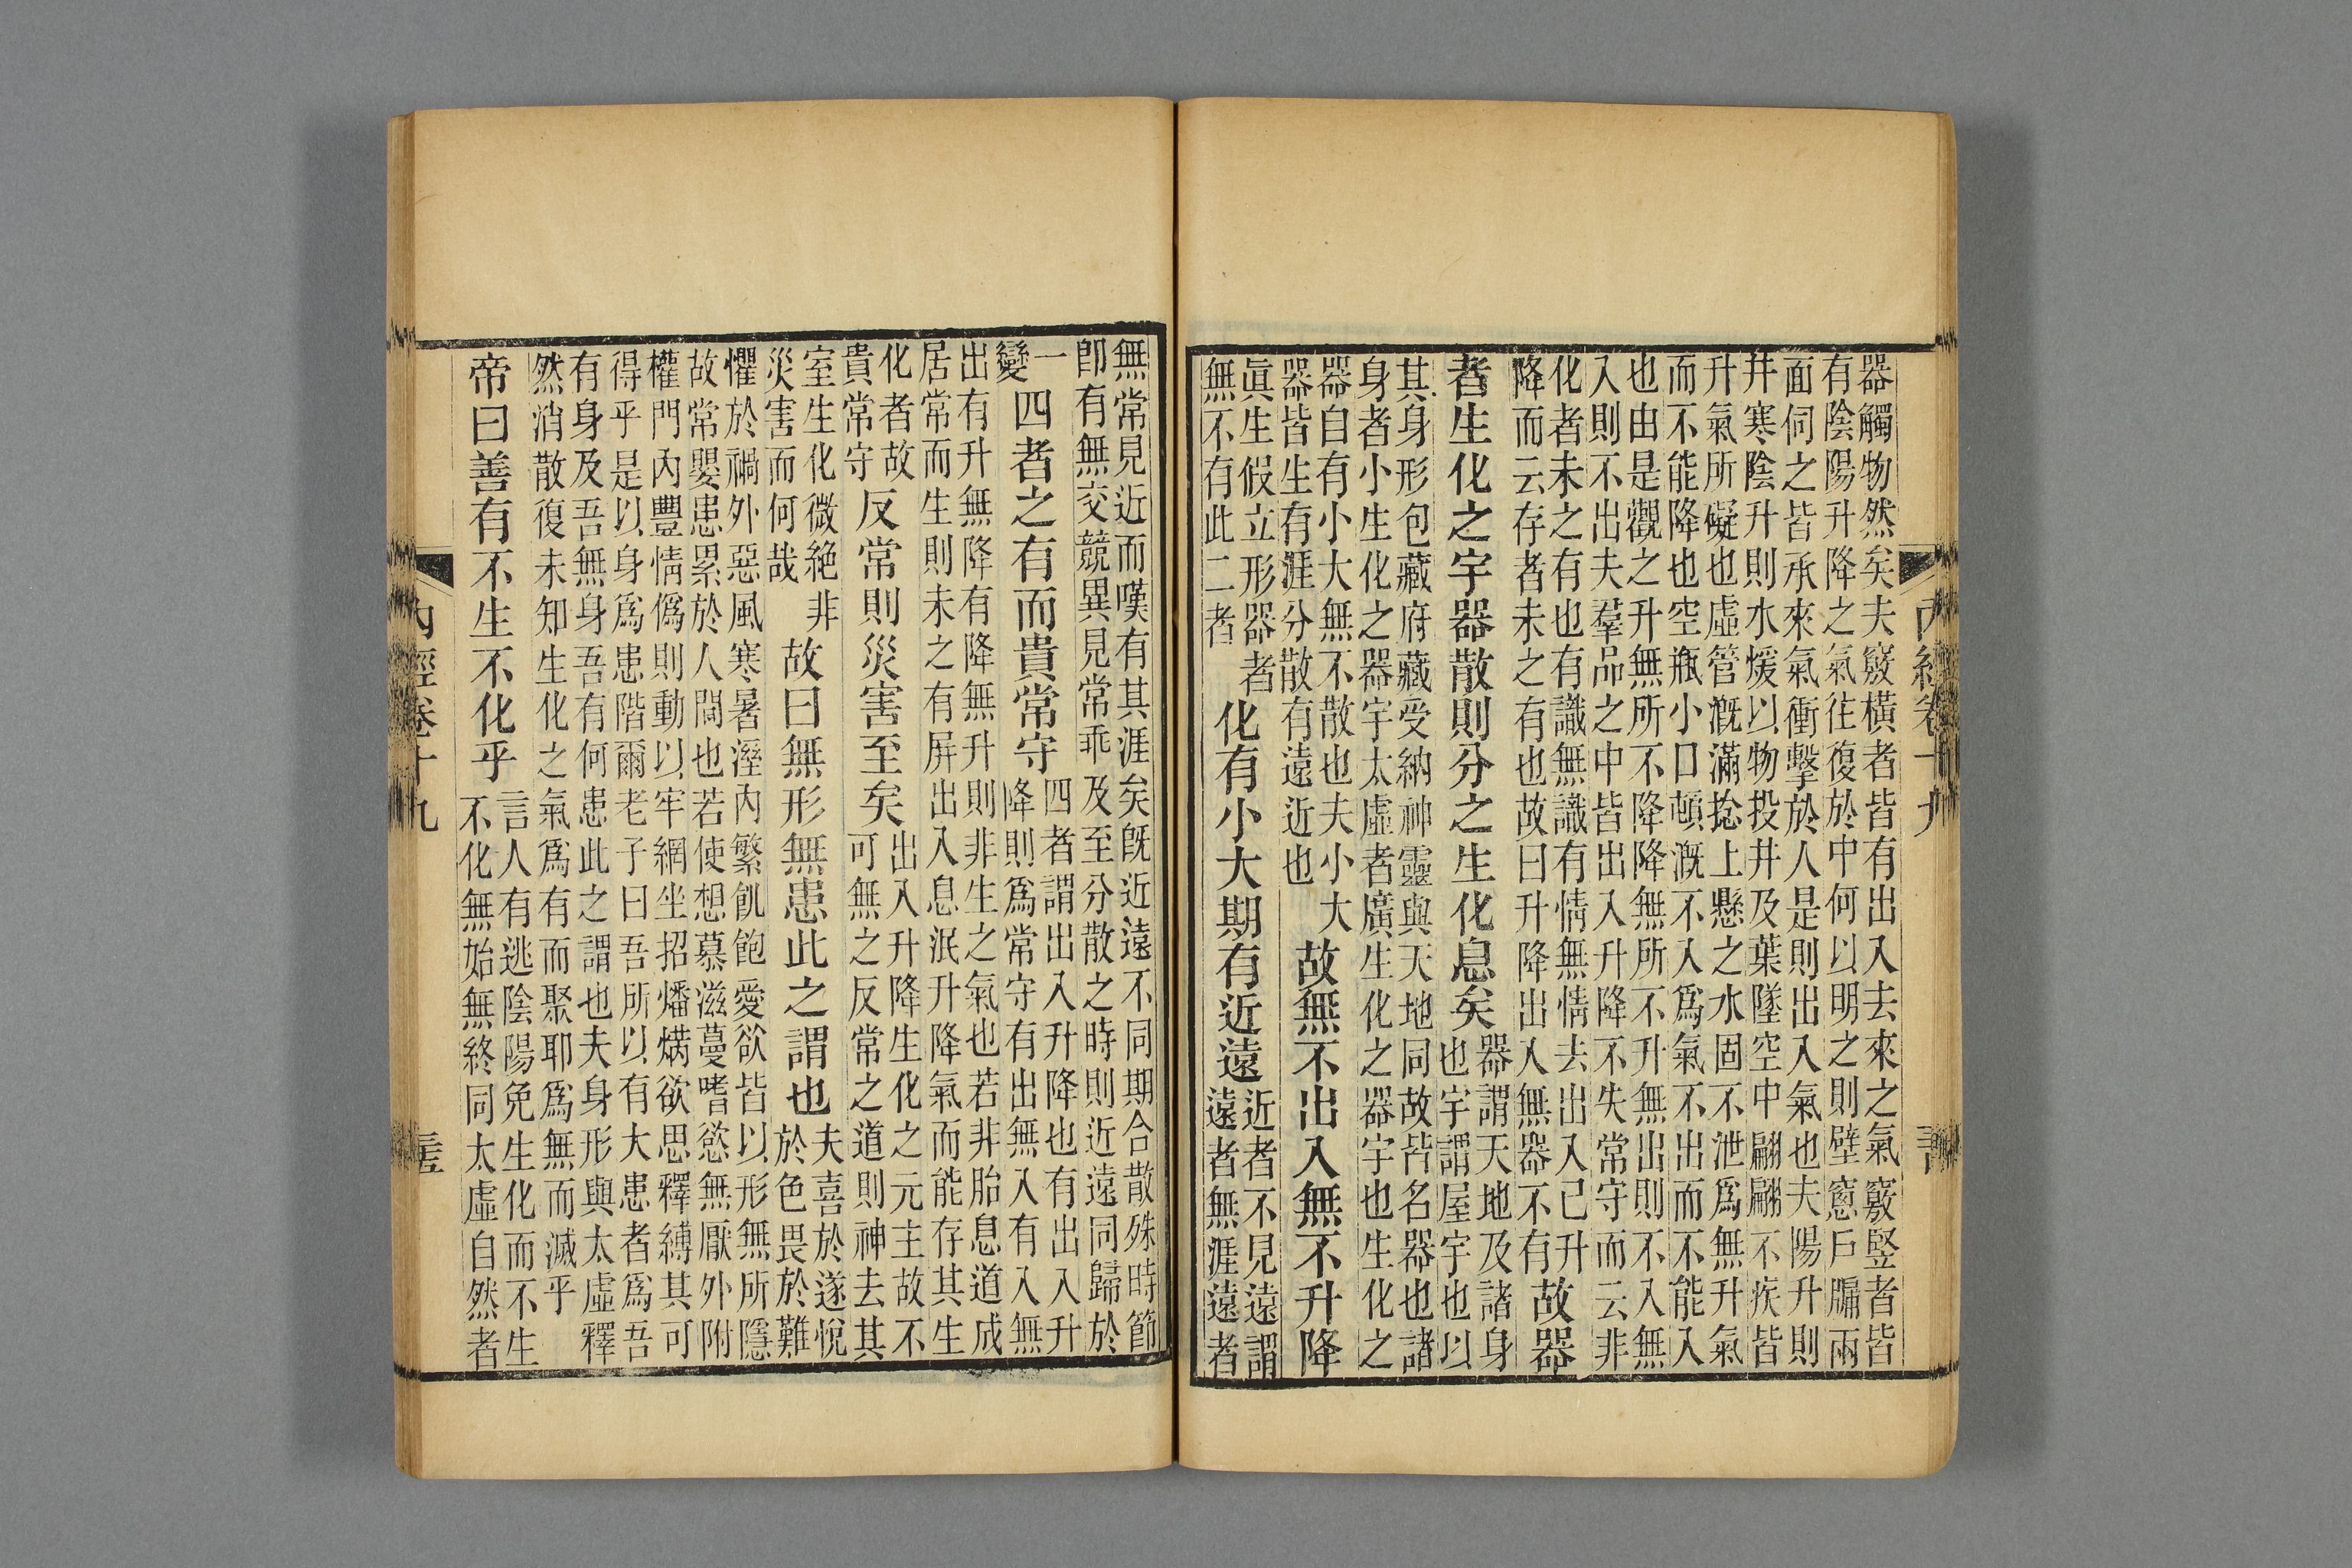 內經卷十九
器觸物然矣夫竅橫者皆有出入去來之氣竅竪者皆
有陰陽升降之氣往復於中何以明之則壁窻戶牖兩
面伺之皆承來氣衝擊於人是則出入氣也夫陽升則
井寒陰升則水煖以物投井及葉墜空中翩翩不疾皆
升氣所礙也虛管漑滿捻上懸之水固不泄爲無升氣
而不能降也空瓶小口頓漑不入爲氣不出而不能入
也由是觀之升無所不降降無所不升無出則不入無
入則不出夫羣品之中皆出入升降不失常守而云非
化者未之有也有識無識有情無情去出入已升
降而云存者未之有也故曰升降出入無器不有
故器
者生化之宇器散則分之生化息矣
器謂天地及諸身
也宇謂屋宇也以
其身形包藏府藏受納神靈與天地同故皆名器也諸
身者小生化之器宇太虛者廣生化之器宇也生化之
器自有小大無不散也夫小大
器皆生有涯分散有遠近也
故無不出入無不升降
眞生假立形器者
無不有此二者
化有小大期有近遠
近者不見遠謂
遠者無涯遠者
無常見近而嘆有其涯矣旣近遠不同期合散殊時節
卽有無交競異見常乖及至分散之時則近遠同歸於
一
變
四者之有而貴常守
四者謂出入升降也有出入升
降則爲常守有出無入有入無
出有升無降有降無升則非生之氣也若非胎息道成
居常而生則未之有屏出入息泯升降氣而能存其生
化者故
貴常守
反常則災害至矣
出入升降生化之元主故不
可無之反常之道則神去其
室生化微絶非
災害而何哉
故曰無形無患此之謂也
夫喜於遂悅
於色畏於難
懼於禍外惡風寒暑溼內繁飢飽愛欲皆以形無所隱
故常嬰患累於人閒也若使想慕滋蔓嗜慾無厭外附
權門內豐情僞則動以牢網坐招燔焫欲思釋縛其可
得乎是以身爲患階爾老子曰吾所以有大患者爲吾
有身及吾無身吾有何患此之謂也夫身形與太虛釋
然消散復未知生化之氣爲有而聚耶爲無而滅乎
帝曰善有不生不化乎
言人有逃陰陽免生化而不生
不化無始無終同太虛自然者
內經卷十九